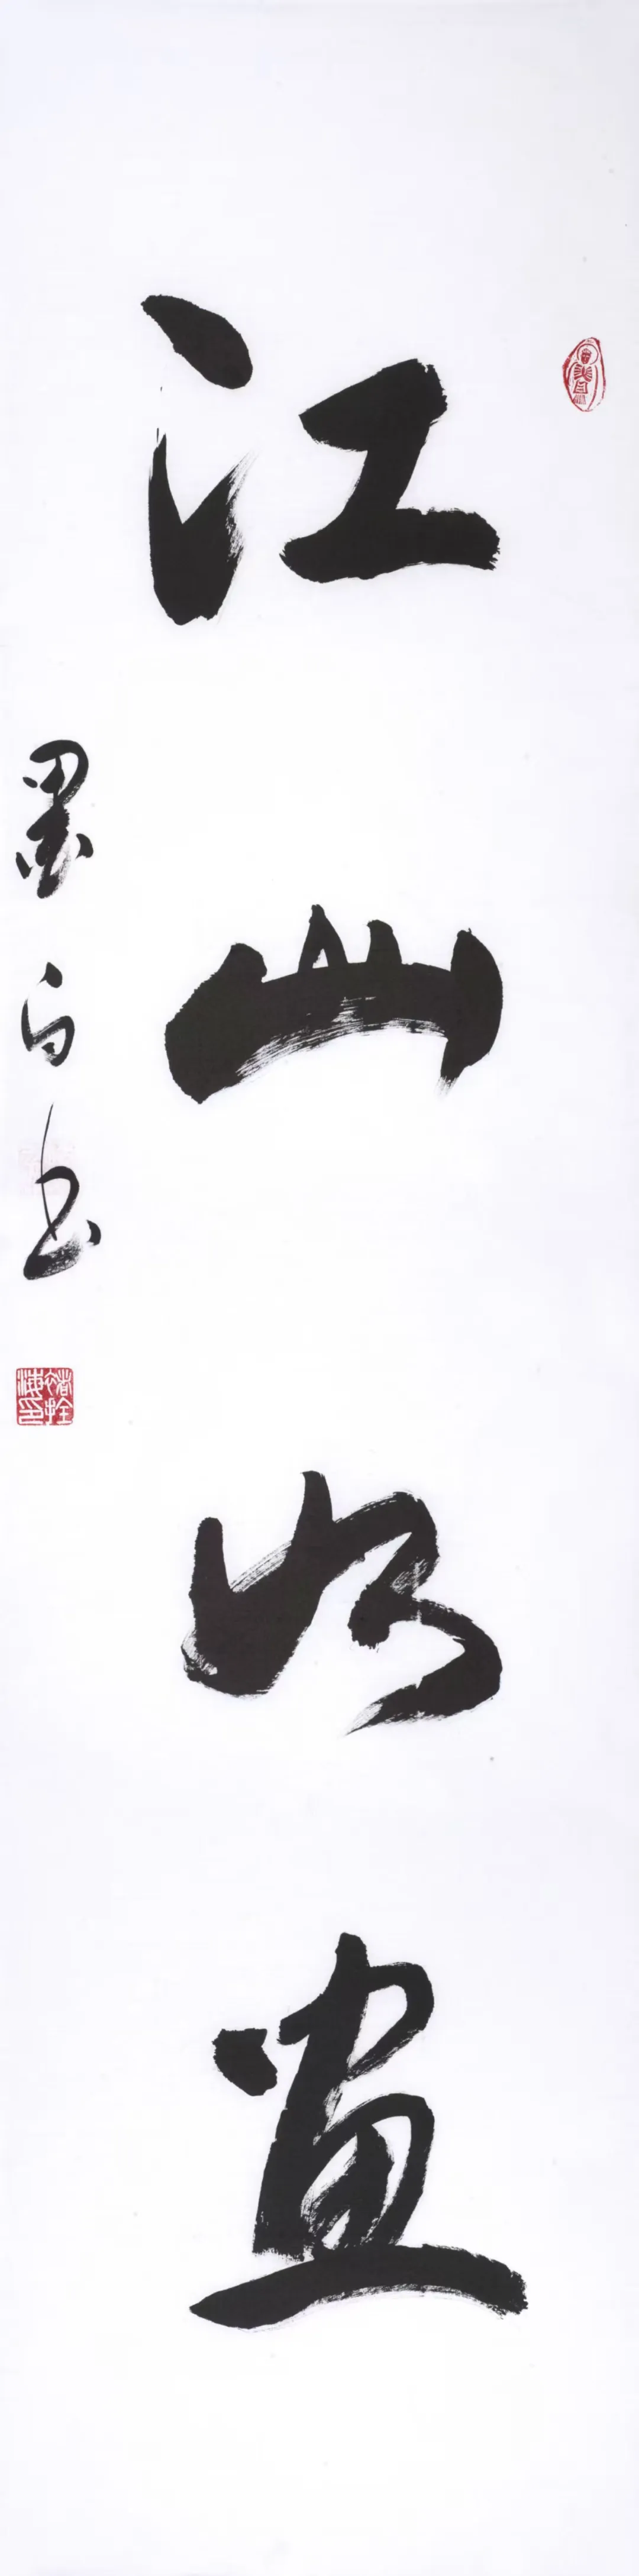 江山如画
墨白书